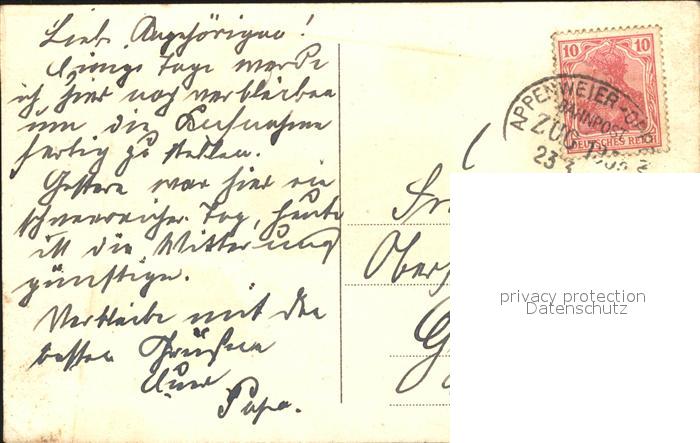 Liebe Angehörigen!
Einige Tage werde
ich hier noch verbleiben
um die Aufnahme
fertig zu stellen.
Gestern war hier ein
schneereicher Tag, heute
ist die Witterung
günstiger.
Verbleibe mit den
besten Grüßen
Euer
Papa.
10 10
DEUTSCHES REICH
APPENWEIER-
BAHNPOST
ZUG
23.
Ober
privacy protection
Datenschutz